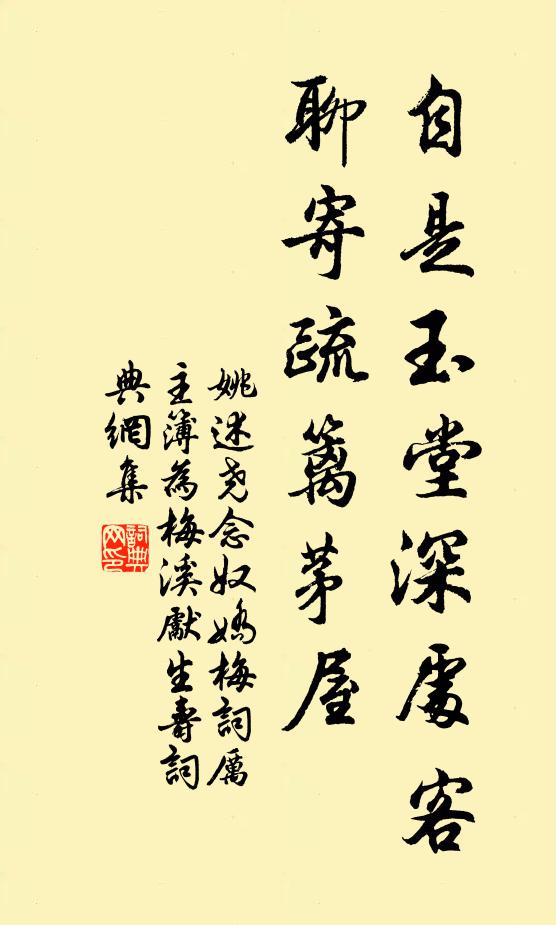 自是玉堂深處客
聊寄疏篱茅屋
姚述尧念奴嬌梅詞厲
主簿為梅溪獻生壽詞
典網集
詞典網印